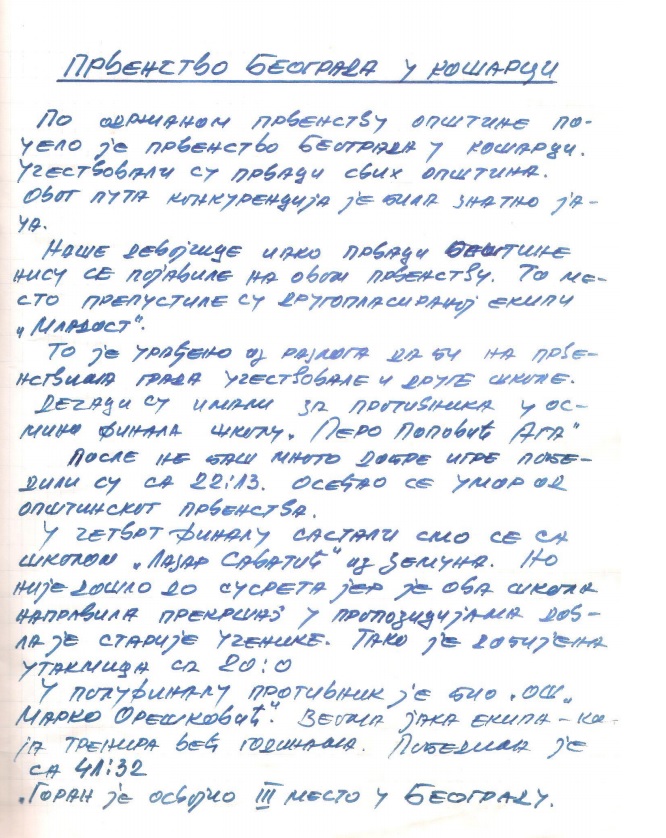 Првенство Београда у кошарци
По одржаном првенству општине по-
чело је првенство Београда у кошарци.
Учествовали су прваци свих општина.
Овог пута конкуренција је била знатно ја-
ча.
Наше девојчице иако прваци општине
нису се појавиле на овом првенству. То ме-
сто препустиле су другопласираној екипи
„Младост“.
То је урађено из разлога да би на прве-
нствима града учествовале и друге школе.
Дечаци су имали за противника у ос-
мини финала школу „Перо Поповић Ага“
После не баш много добре игре побе-
дили су са 22:13. Осећао се умор од
општинског првенства.
У четврт финалу састали смо се са
школом „Лазар Саватић“ из Земуна. Но
није дошло до сусрета јер је ова школа
направила прекршај у пропозицијама дов-
ла је старије ученике. Тако је добијена
утакмица са 20:0
У полуфиналу противник је био „ОШ„
Марко Орешковић“. Веома јака екипа - ко-
ја тренира већ годинама. Победила је
са 41:32
„Горан је освојио III место у Београду.